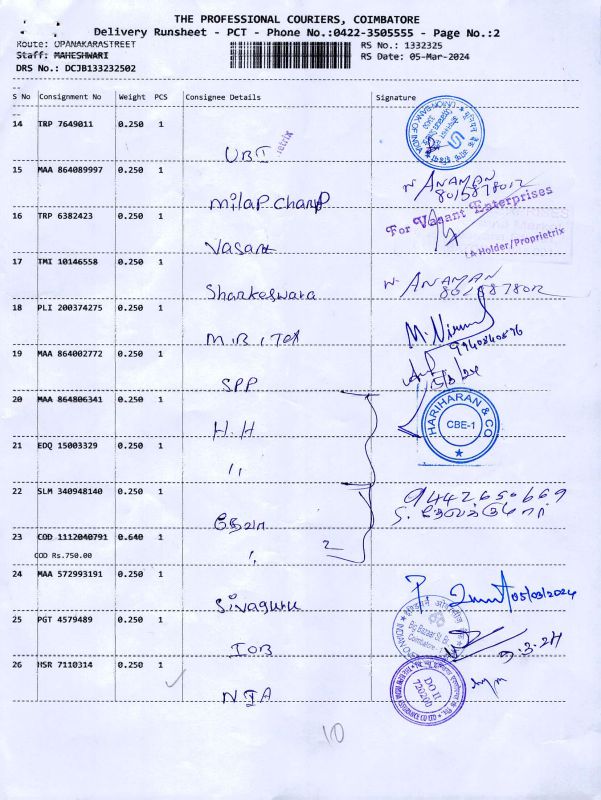 THE PROFESSIONAL COURIERS, COIMBATORE
Delivery Runsheet - PCT - Phone No.:0422-3505555 - Page No.:2
Route: OPANAKARASTREET
RS No.: 1332325
Staff: MAHESHWARI
RS Date: 05-Mar-2024
DRS No.: DCJB133232502
S No Consignment No Weight PCS Consignee Details Signature
14 TRP 7649011 0.250 1
UBI
15 MAA 864089997 0.250 1
milap chand
8015878012
16 TRP 6382423 0.250 1
Vasant
For Vasant Enterprises
I.A Holder/Proprietrix
17 TMI 10146558 0.250 1
Shankeswara
8015878012
18 PLI 200374275 0.250 1
19 MAA 864002772 0.250 1
SPP
20 MAA 864806341 0.250 1
H.H
HARIHARAN & CO
CBE-1
21 EDQ 15003329 0.250 1
〃
22 SLM 340948140 0.250 1
தேவா
9442650669
23 COD 1112040791 0.640 1
COD Rs.750.00
〃
2
24 MAA 572993191 0.250 1
Sivaguru
05/03/2024
25 PGT 4579489 0.250 1
IOB
Big Bazaar St. Br.
Coimbatore
26 NSR 7110314 0.250 1
NIA
DO II
720200
10